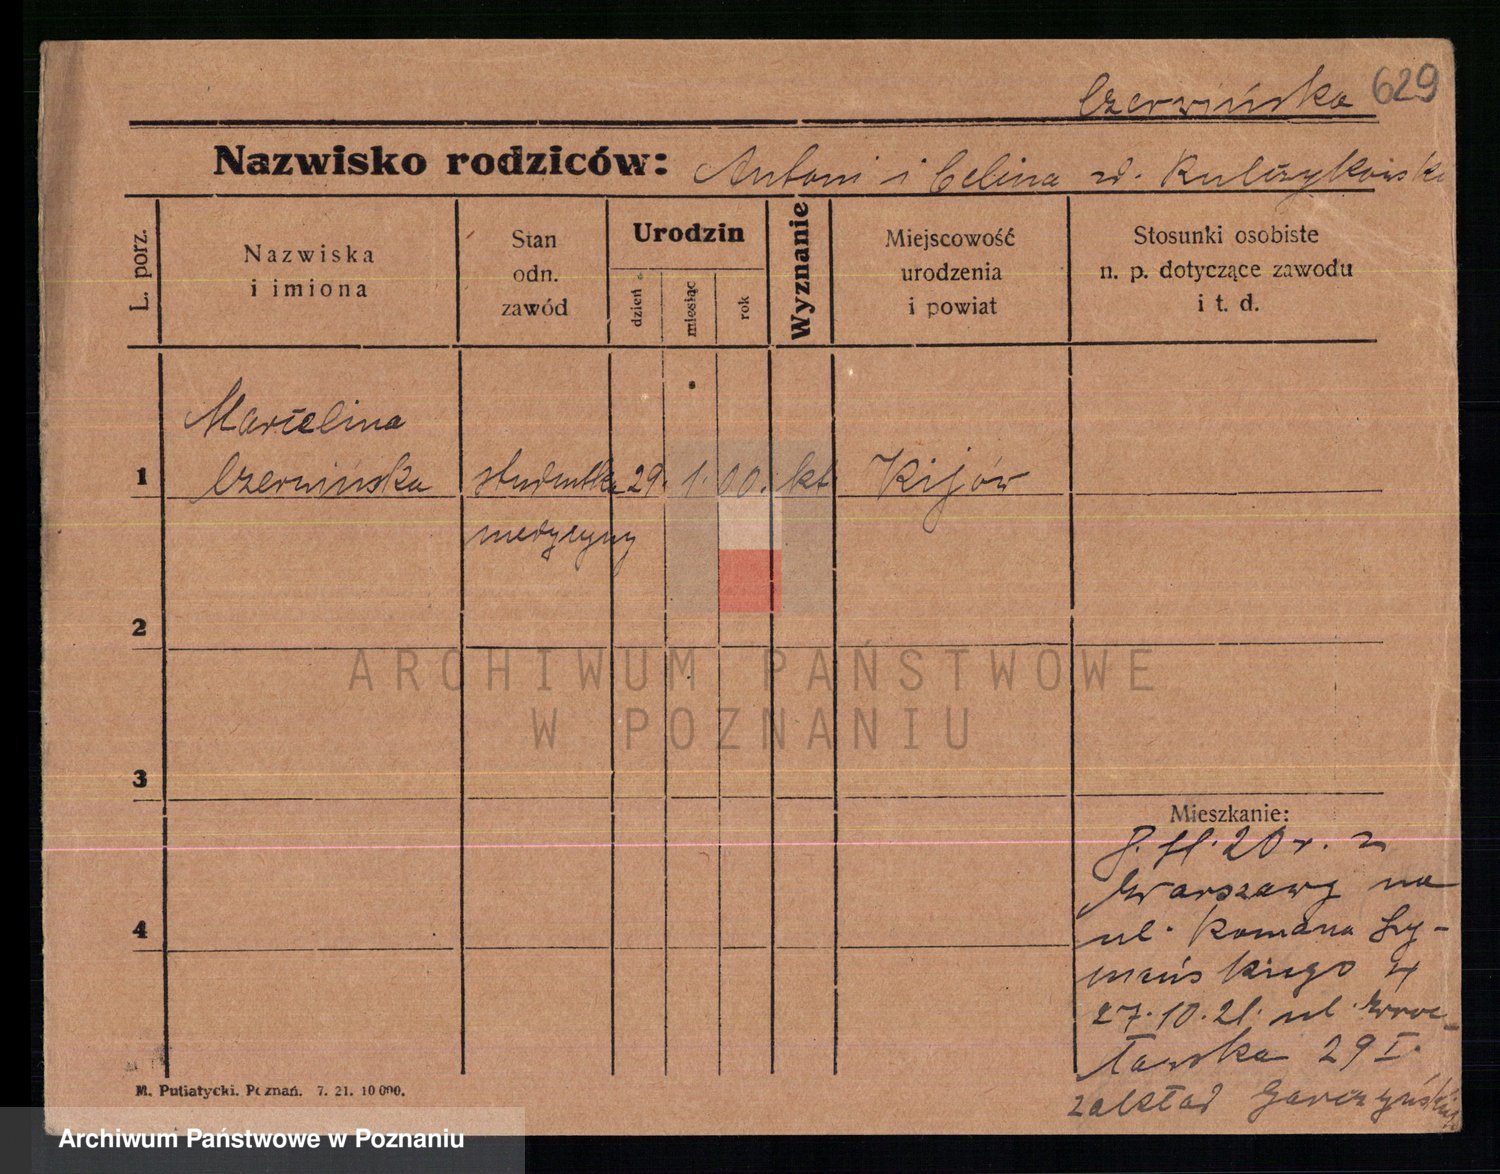 Czerwińska 629
Nazwisko rodziców: Antoni i Celina zd. Kulczykowska
L. porz.
Nazwiska
i imiona
Stan
odn.
zawód
Urodzin
dzień
miesiąc
rok
Wyznanie
Miejscowość
urodzenia
i powiat
Stosunki osobiste
n. p. dotyczące zawodu
i t. d.
Marcelina
1 Czerwińska studentka 29. 1. 00. kt Kijów
medycyny
2
ARCHIWUM PAŃSTWOWE
W POZNANIU
3
Mieszkanie:
11. 20 r. z
Warszawy na
4 ul. Romana Szy-
mańskiego 4
27. 10. 21. ul. Wroc-
ławska 29 I.
zakład Garczyńskich
M. Putiatycki. Poznań. 7. 21. 10 000.
Archiwum Państwowe w Poznaniu